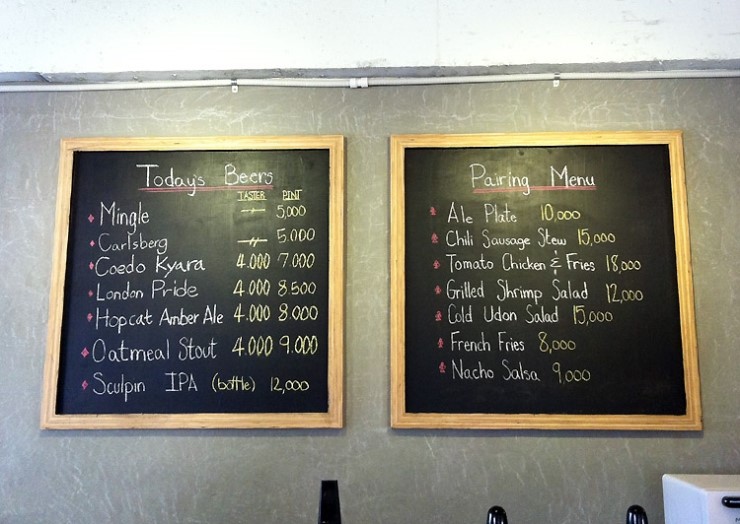 Today's Beers
TASTER PINT
Mingle 5,000
Carlsberg 5.000
Coedo Kyara 4.000 7.000
London Pride 4.000 8.500
Hopcat Amber Ale 4.000 8.000
Oatmeal Stout 4.000 9.000
Sculpin IPA (bottle) 12,000
Pairing Menu
Ale Plate 10,000
Chili Sausage Stew 15,000
Tomato Chicken & Fries 18,000
Grilled Shrimp Salad 12,000
Cold Udon Salad 15,000
French Fries 8,000
Nacho Salsa 9,000